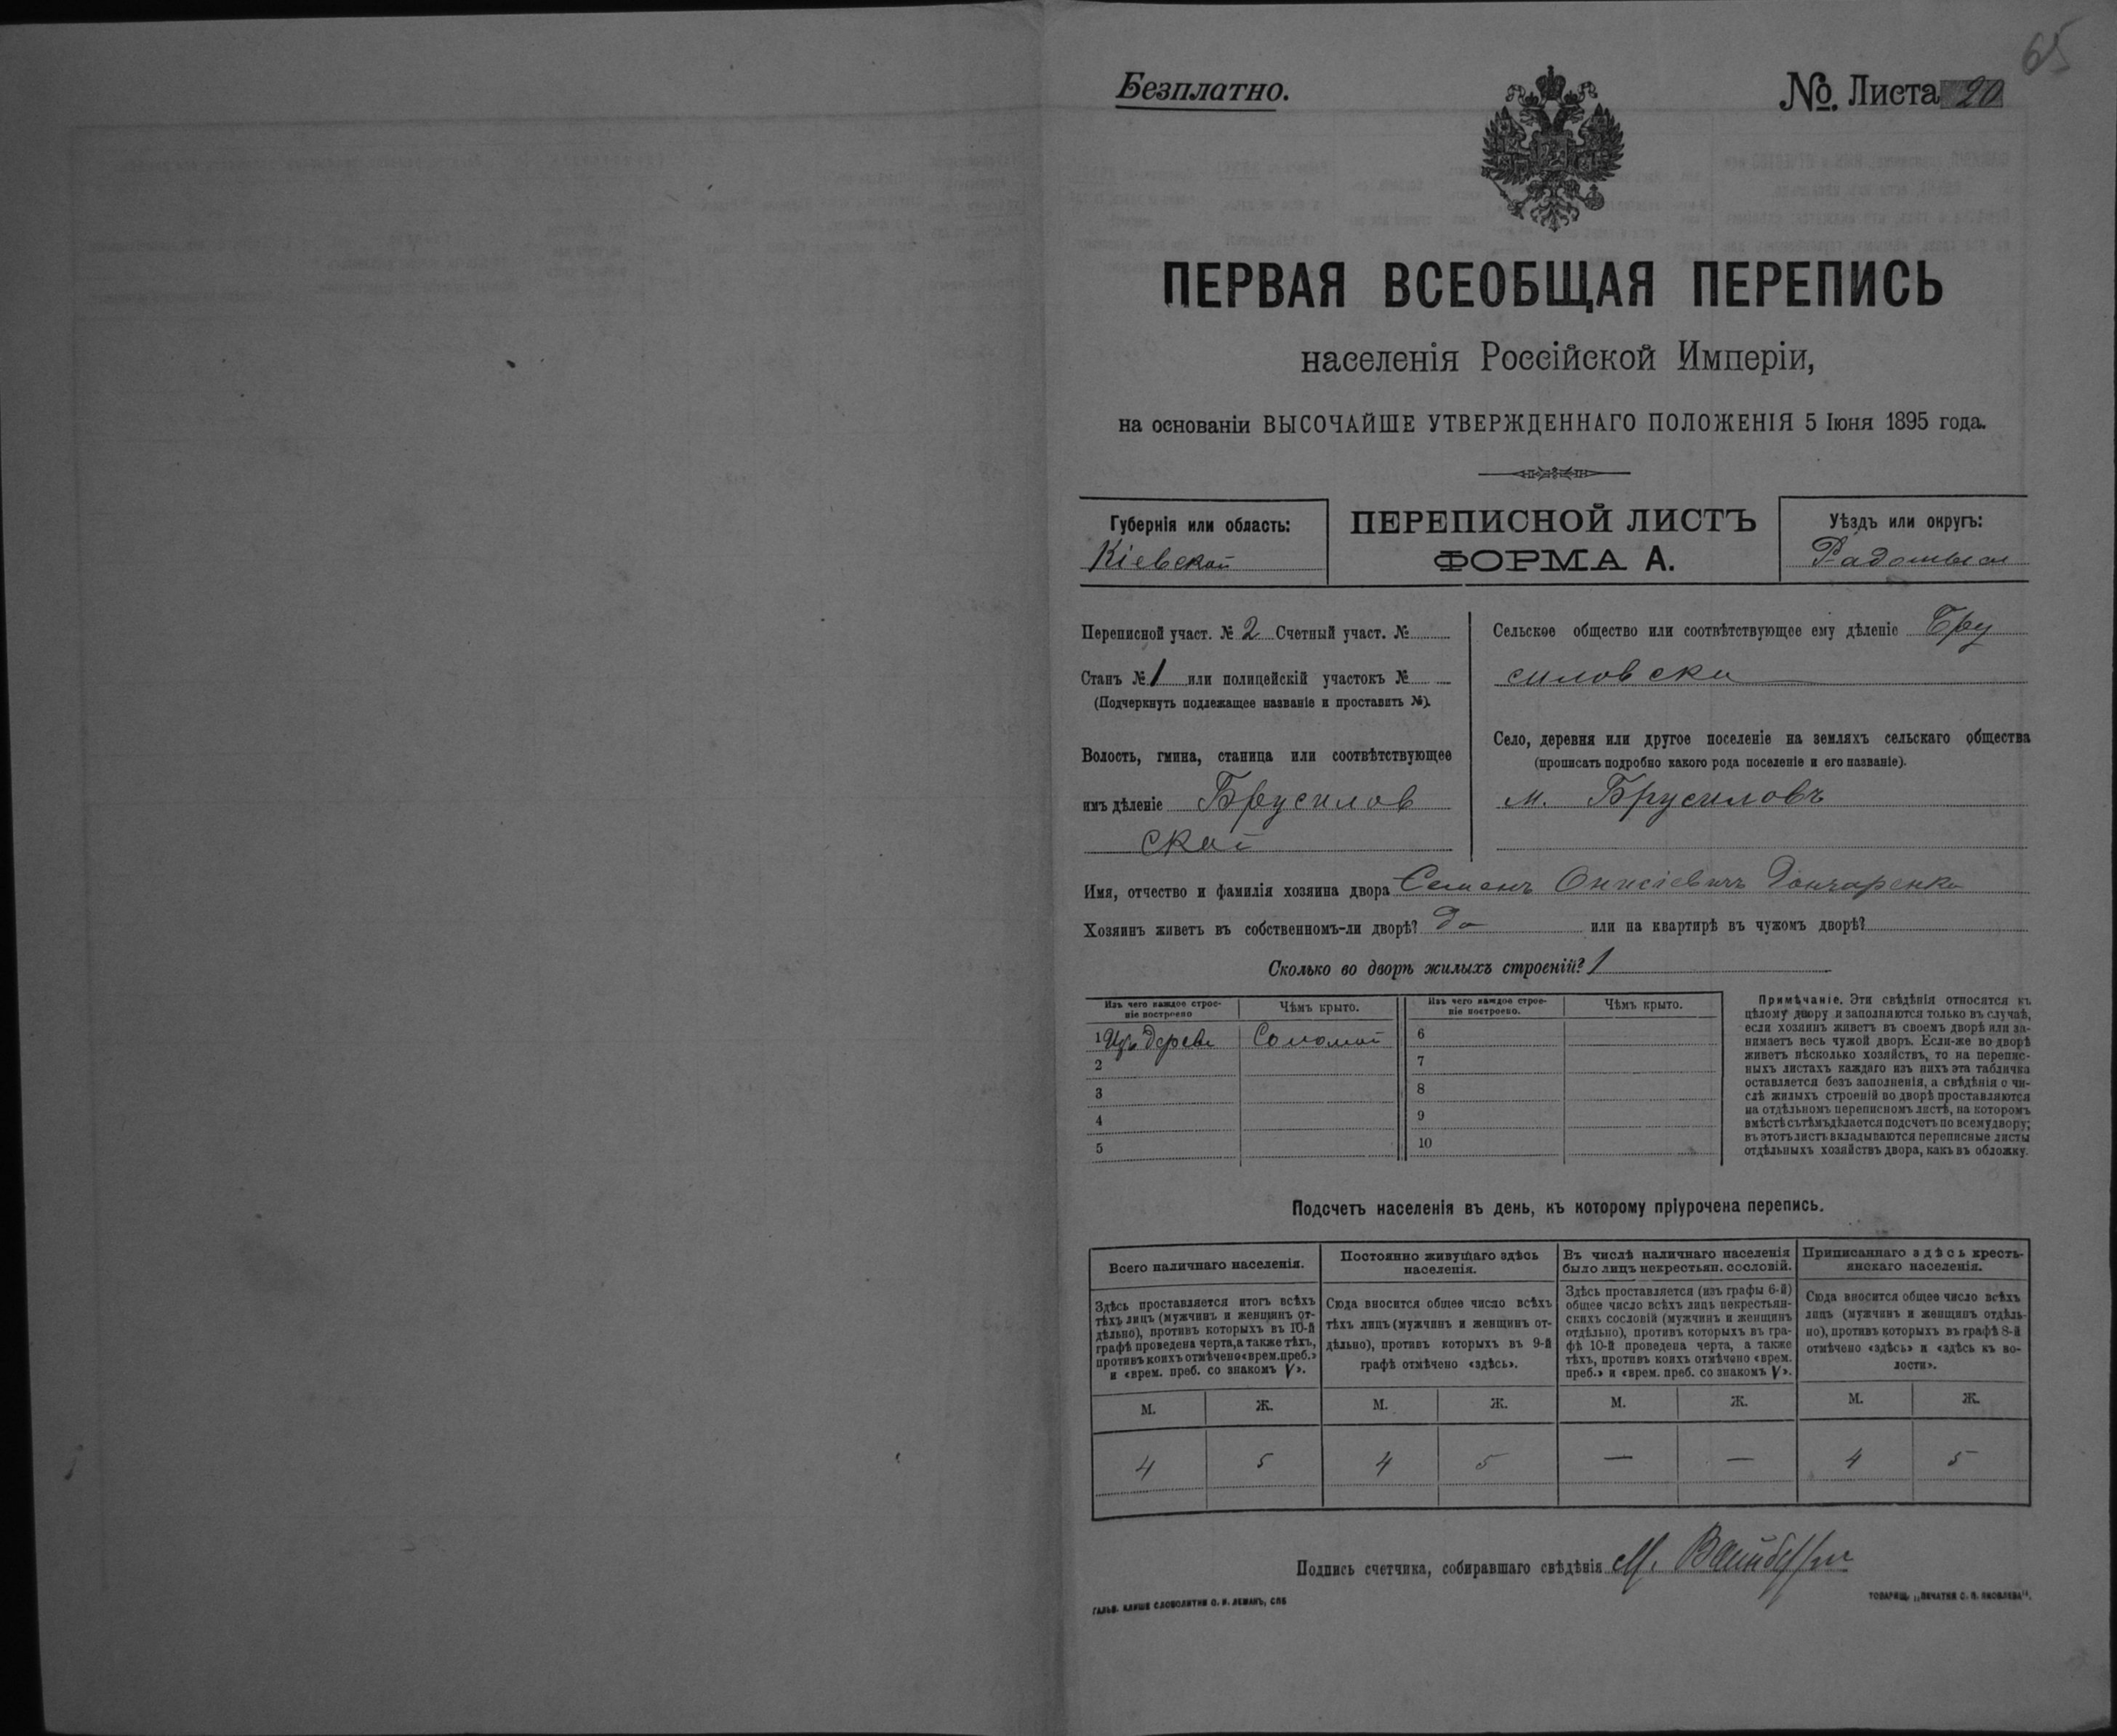 65
Безплатно.
№. Листа 20
ПЕРВАЯ ВСЕОБЩАЯ ПЕРЕПИСЬ
населенія Россійской Имперіи,
на основаніи ВЫСОЧАЙШЕ УТВЕРЖДЕННАГО ПОЛОЖЕНІЯ 5 Іюня 1895 года.
Губернія или область:
Кіевской
ПЕРЕПИСНОЙ ЛИСТЪ
ФОРМА А.
Уѣздъ или округъ:
Радомысл
Переписной участ. № 2 Счетный участ. №
Станъ № 1 или полицейскій участокъ №
(Подчеркнуть подлежащее названіе и проставить №).
Волость, гмина, станица или соотвѣтствующее
имъ дѣленіе Брусилов
ской
Сельское общество или соотвѣтствующее ему дѣленіе Бру
силовски
Село, деревня или другое поселеніе на земляхъ сельскаго общества
(прописать подробно какого рода поселеніе и его названіе).
м. Брусиловъ
Имя, отчество и фамилія хозяина двора Семенъ Онисіевичъ Гончаренко
Хозяинъ живетъ въ собственномъ-ли дворѣ? да или на квартирѣ въ чужомъ дворѣ?
Сколько во дворѣ жилыхъ строеній? 1
Изъ чего каждое строе-
ніе построено
Чѣмъ крыто.
Изъ чего каждое строе-
ніе построено.
Чѣмъ крыто.
1 Изъ дерева Соломой 6
2 7
3 8
4 9
5 10
Примѣчаніе. Эти свѣдѣнія относятся къ
цѣлому двору и заполняются только въ случаѣ,
если хозяинъ живетъ въ своемъ дворѣ или за-
нимаетъ весь чужой дворъ. Если-же во дворѣ
живетъ нѣсколько хозяйствъ, то на перепис-
ныхъ листахъ каждаго изъ нихъ эта табличка
оставляется безъ заполненія, а свѣдѣнія о чи-
слѣ жилыхъ строеній во дворѣ проставляются
на отдѣльномъ переписномъ листѣ, на которомъ
вмѣстѣ съ тѣмъ дѣлается подсчетъ по всему двору;
въ этотъ листъ вкладываются переписные листы
отдѣльныхъ хозяйствъ двора, какъ въ обложку.
Подсчетъ населенія въ день, къ которому пріурочена перепись.
Всего наличнаго населенія.
Здѣсь проставляется итогъ всѣхъ
тѣхъ лицъ (мужчинъ и женщинъ от-
дѣльно), противъ которыхъ въ 10-й
графѣ проведена черта, а также тѣхъ,
противъ коихъ отмѣчено «врем. преб.»
и «врем. преб. со знакомъ V».
Постоянно живущаго здѣсь
населенія.
Сюда вносится общее число всѣхъ
тѣхъ лицъ (мужчинъ и женщинъ от-
дѣльно), противъ которыхъ въ 9-й
графѣ отмѣчено «здѣсь».
Въ числѣ наличнаго населенія
было лицъ некрестьян. сословій.
Здѣсь проставляется (изъ графы 6-й)
общее число всѣхъ лицъ некрестьян-
скихъ сословій (мужчинъ и женщинъ
отдѣльно), противъ которыхъ въ гра-
фѣ 10-й проведена черта, а также
тѣхъ, противъ коихъ отмѣчено «врем.
преб.» и «врем. преб. со знакомъ V».
Приписаннаго здѣсь кресть-
янскаго населенія.
Сюда вносится общее число всѣхъ
лицъ (мужчинъ и женщинъ отдѣль-
но), противъ которыхъ въ графѣ 8-й
отмѣчено «здѣсь» и «здѣсь къ во-
лости».
М. Ж. М. Ж. М. Ж. М. Ж.
4 5 4 5 — — 4 5
Подпись счетчика, собиравшаго свѣдѣнія М.
ГАЛЬВ. КЛИШЕ СЛОВОЛИТНИ О. И. ЛЕМАНЪ, СПБ
ТОВАРИЩ. „ПЕЧАТНЯ С. П. ЯКОВЛЕВА".